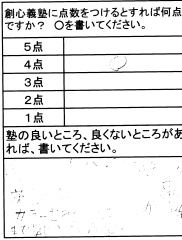 創心義塾に点数をつけるとすれば何点
ですか？ ○を書いてください。
5点
4点 ○
3点
2点
1点
塾の良いところ、良くないところがあ
れば、書いてください。